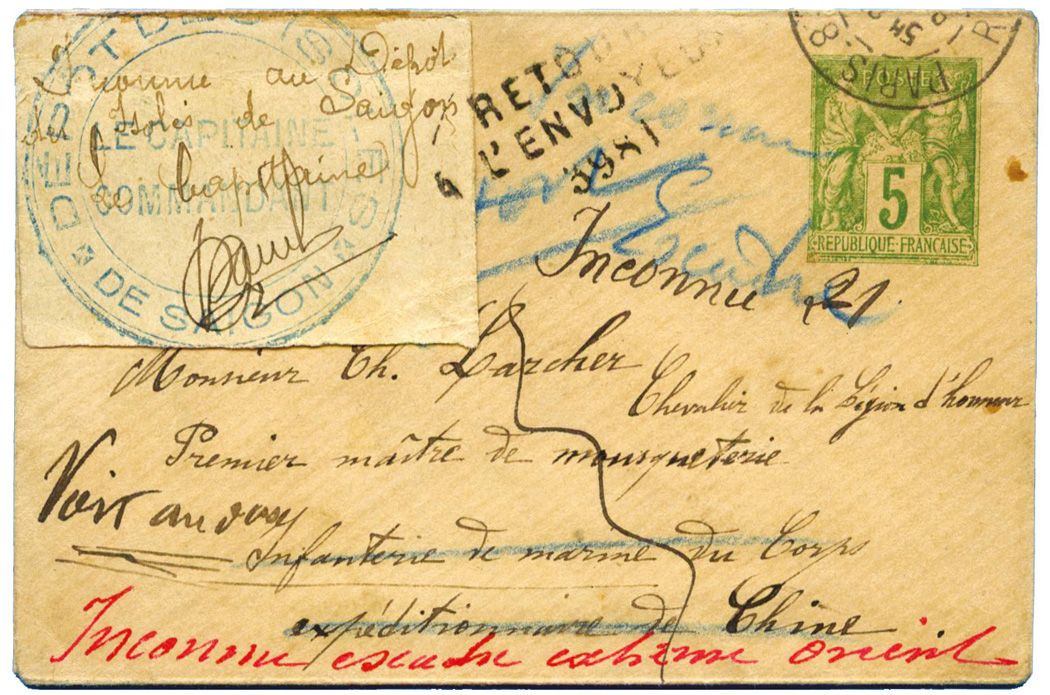 Inconnu au Dépôt
des Isolés de Saigon
Le Capitaine
LE CAPITAINE
COMMANDANT
DE SAIGON
RETOUR
A L'ENVOYEUR
3981
PARIS
5
REPUBLIQUE FRANÇAISE
Inconnu
Inconnu 21
Monsieur Th. Larcher
Chevalier de la Légion d'honneur
Premier maître de mousqueterie
Voir au dos
Infanterie de marine du Corps
expéditionnaire de Chine
Inconnu escadre extreme orient